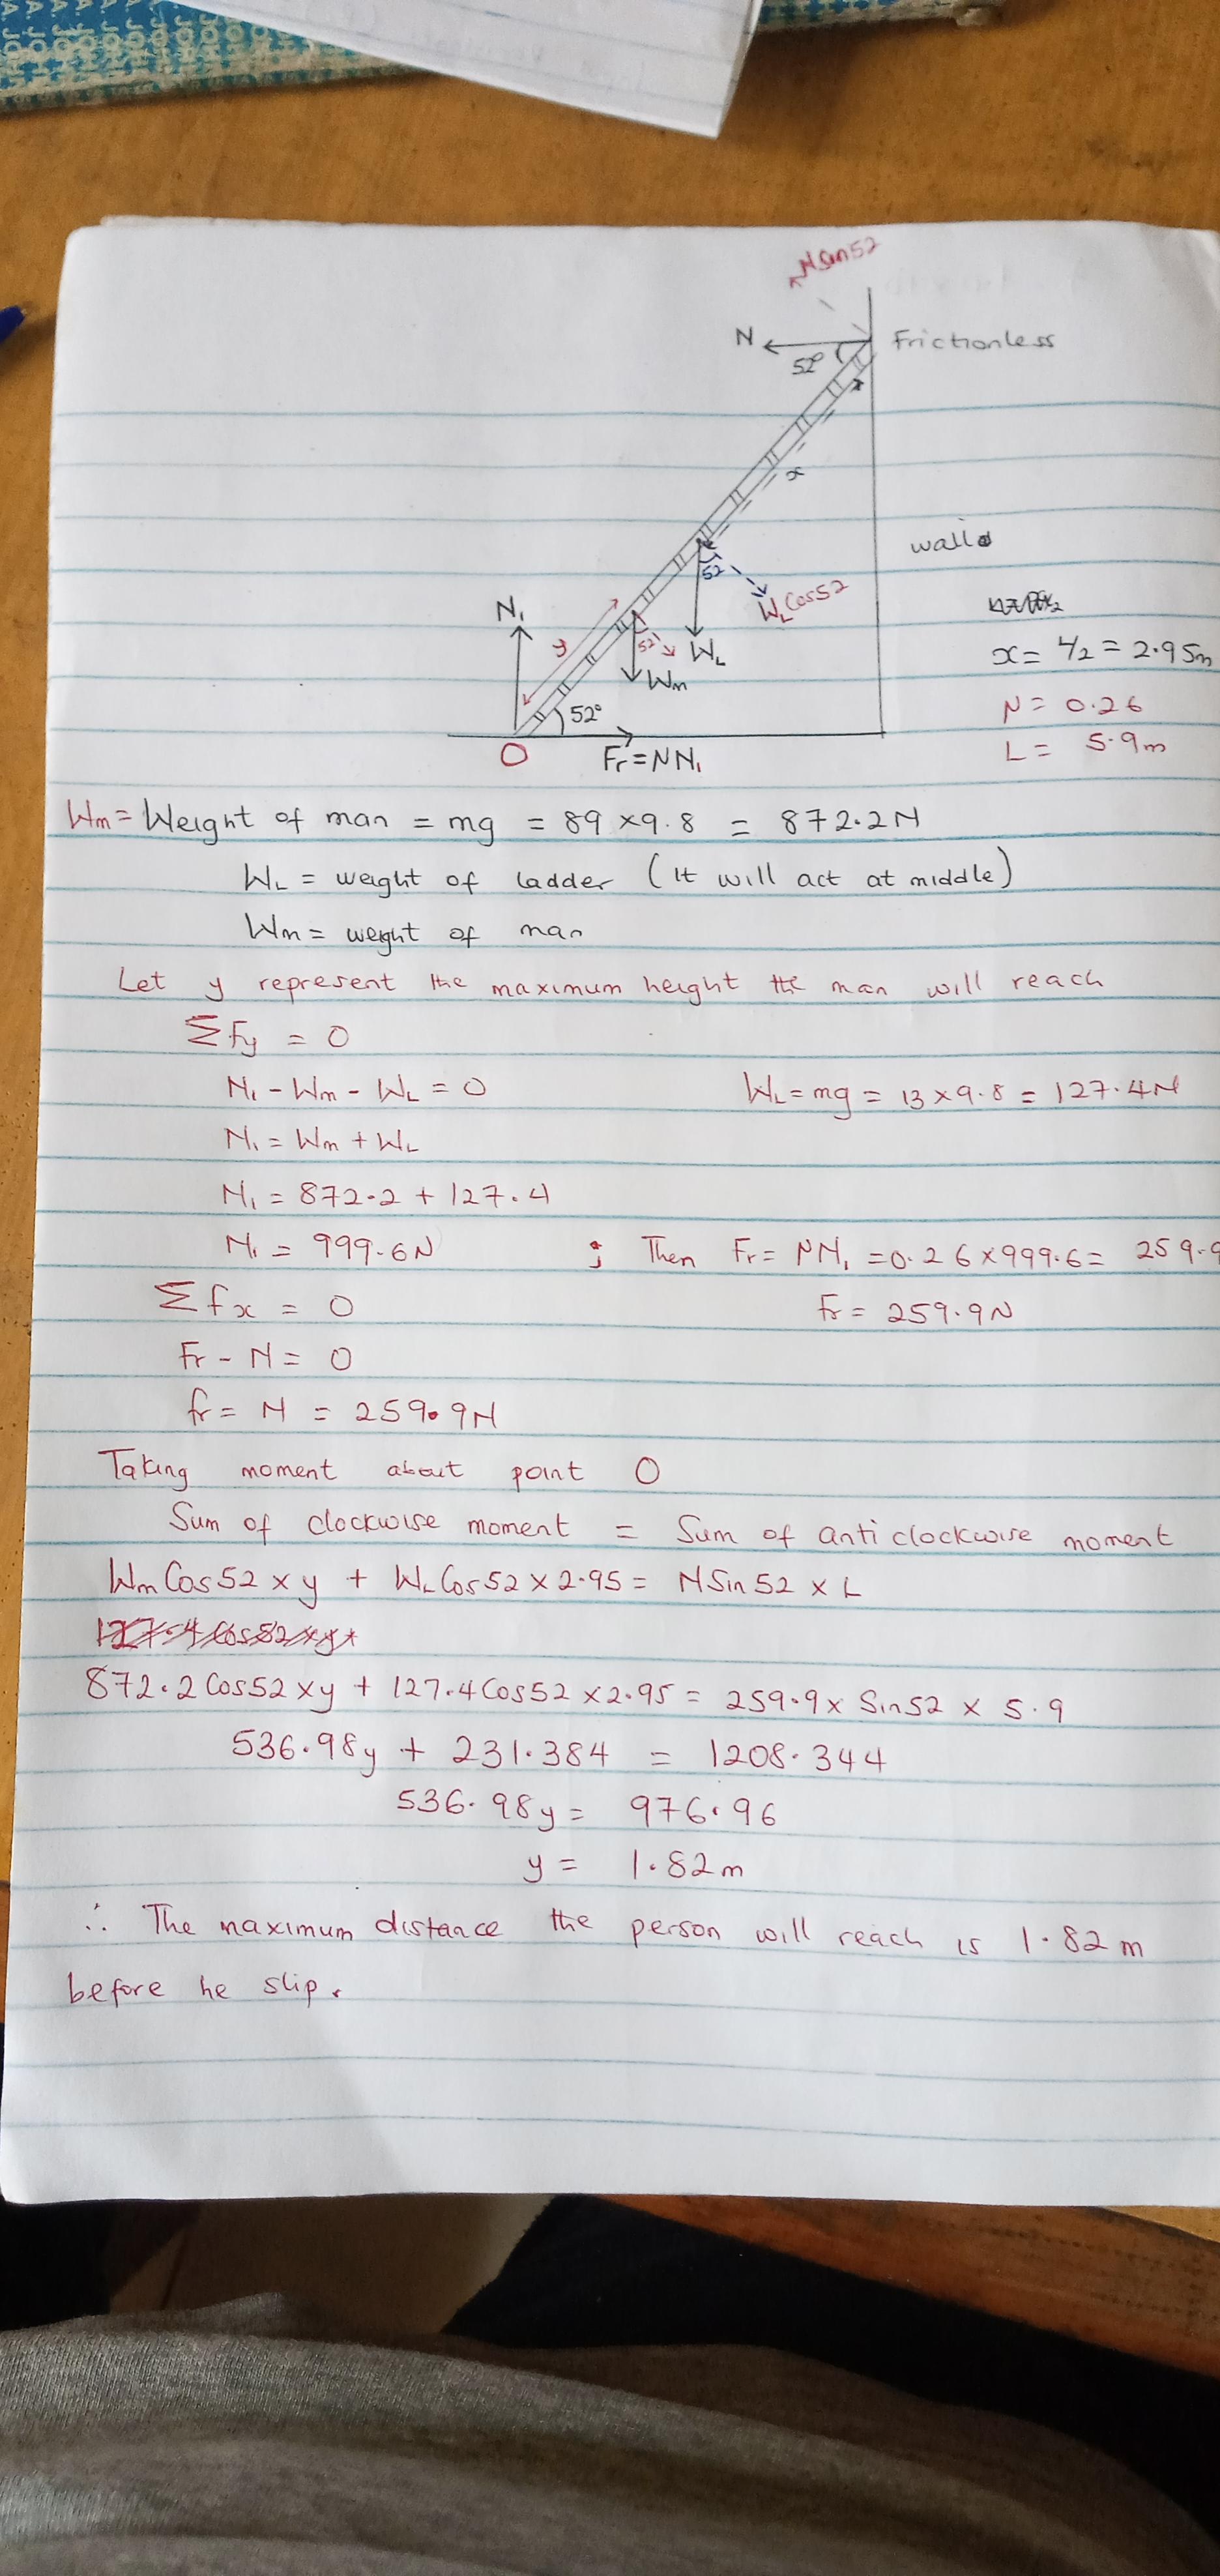 NSin52
N
52°
Frictionless
x
52
WL Cos52
wall
N1
y
52
WL
Wm
x = L/2 = 2.95m
52°
μ = 0.26
O
Fr = μN1
L = 5.9m
Wm = Weight of man = mg = 89 × 9.8 = 872.2N
WL = weight of ladder (It will act at middle)
Wm = weight of man
Let y represent the maximum height the man will reach
ΣFy = 0
N1 - Wm - WL = 0
WL = mg = 13 × 9.8 = 127.4N
N1 = Wm + WL
N1 = 872.2 + 127.4
N1 = 999.6N ; Then Fr = μN1 = 0.26 × 999.6 = 259.9
Σfx = 0
Fr = 259.9N
Fr - N = 0
fr = N = 259.9N
Taking moment about point O
Sum of clockwise moment = Sum of anticlockwise moment
Wm Cos52 × y + WL Cos52 × 2.95 = N Sin52 × L
872.2 Cos52 × y + 127.4 Cos52 × 2.95 = 259.9 × Sin52 × 5.9
536.98y + 231.384 = 1208.344
536.98y = 976.96
y = 1.82m
∴ The maximum distance the person will reach is 1.82m
before he slip.